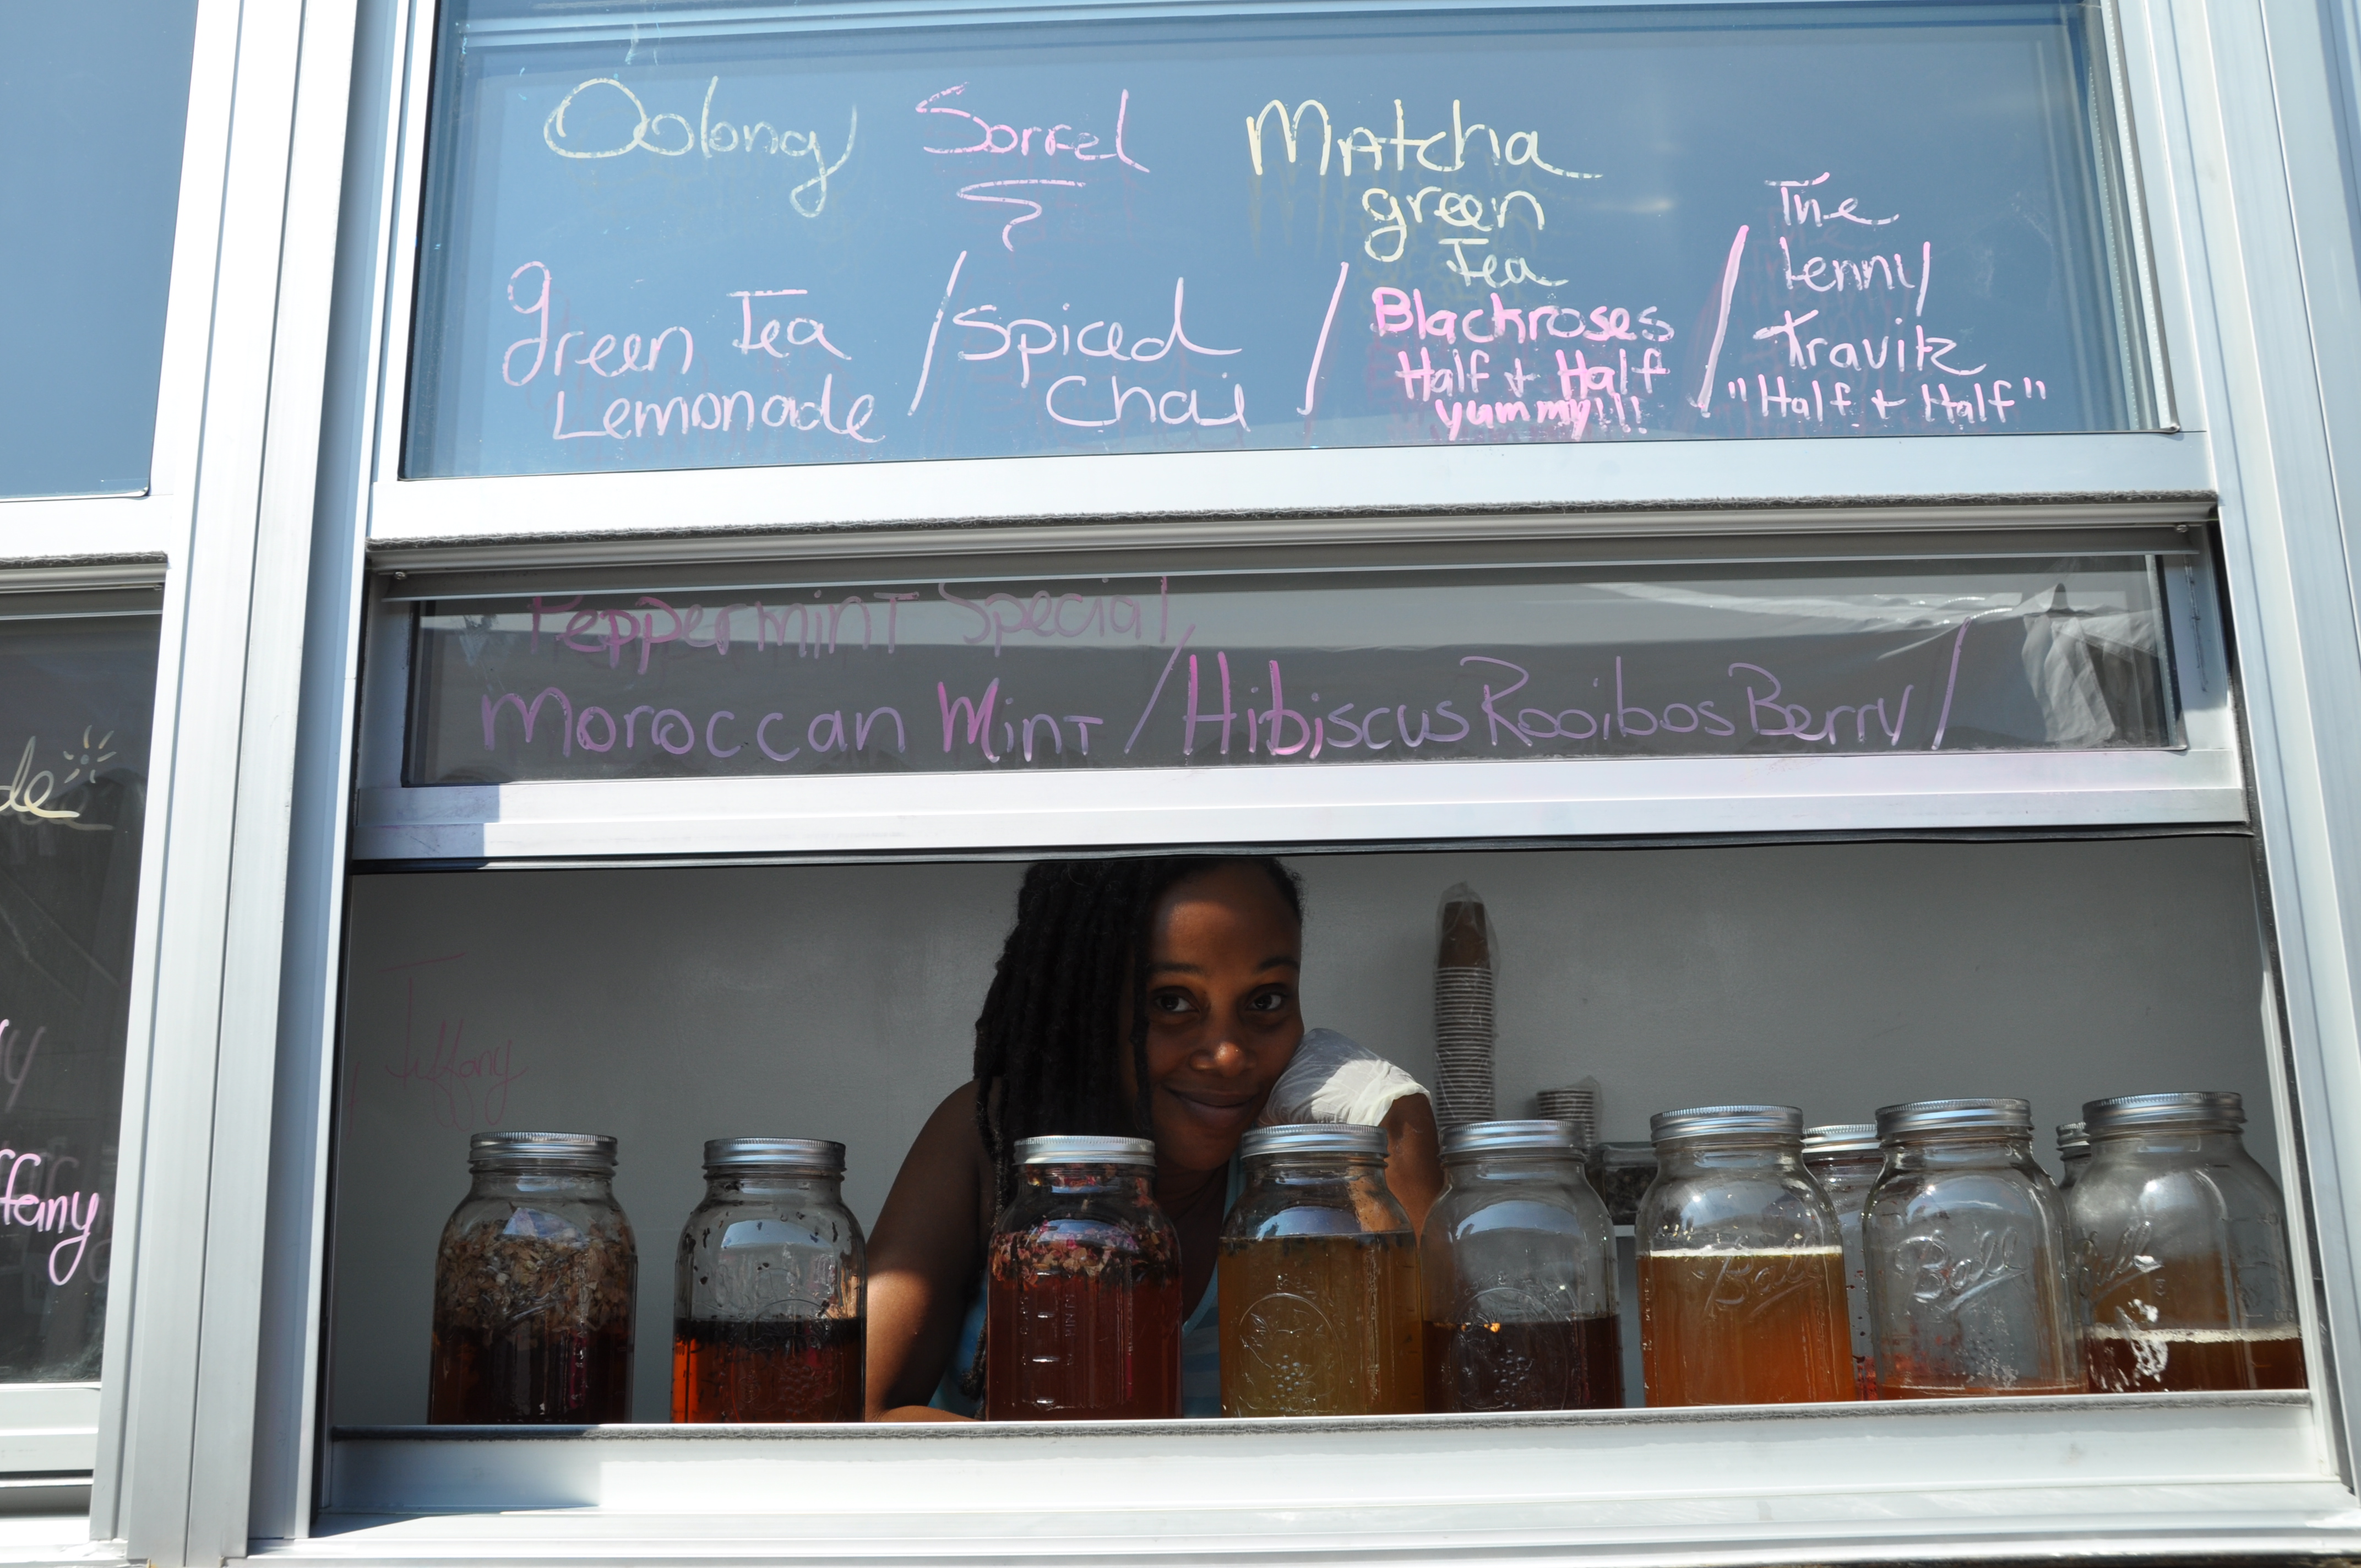 Oolong Sorrel Matcha
green
Tea
The
Lenny
Kravitz
"Half + Half"
Green Tea
Lemonade
/
Spiced
Chai
/
Blackroses
Half + Half
yummy!!!
/
Peppermint Special
Moroccan Mint / Hibiscus Rooibos Berry /
Tiffany
Ball
Ball